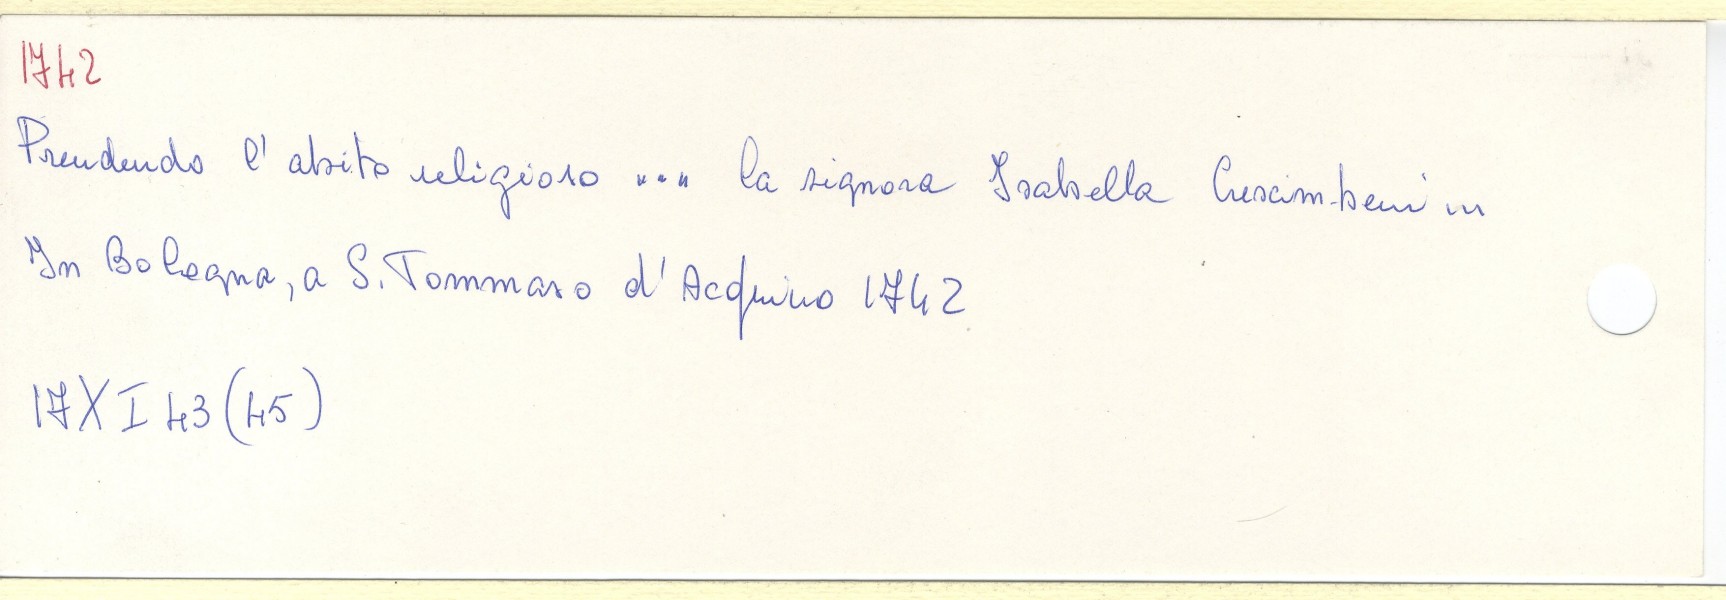 1742
Prendendo l'abito religioso ... la signora Isabella Crescimbeni in
In Bologna, a S. Tommaso d'Acquino 1742
17 X I 43 (45)